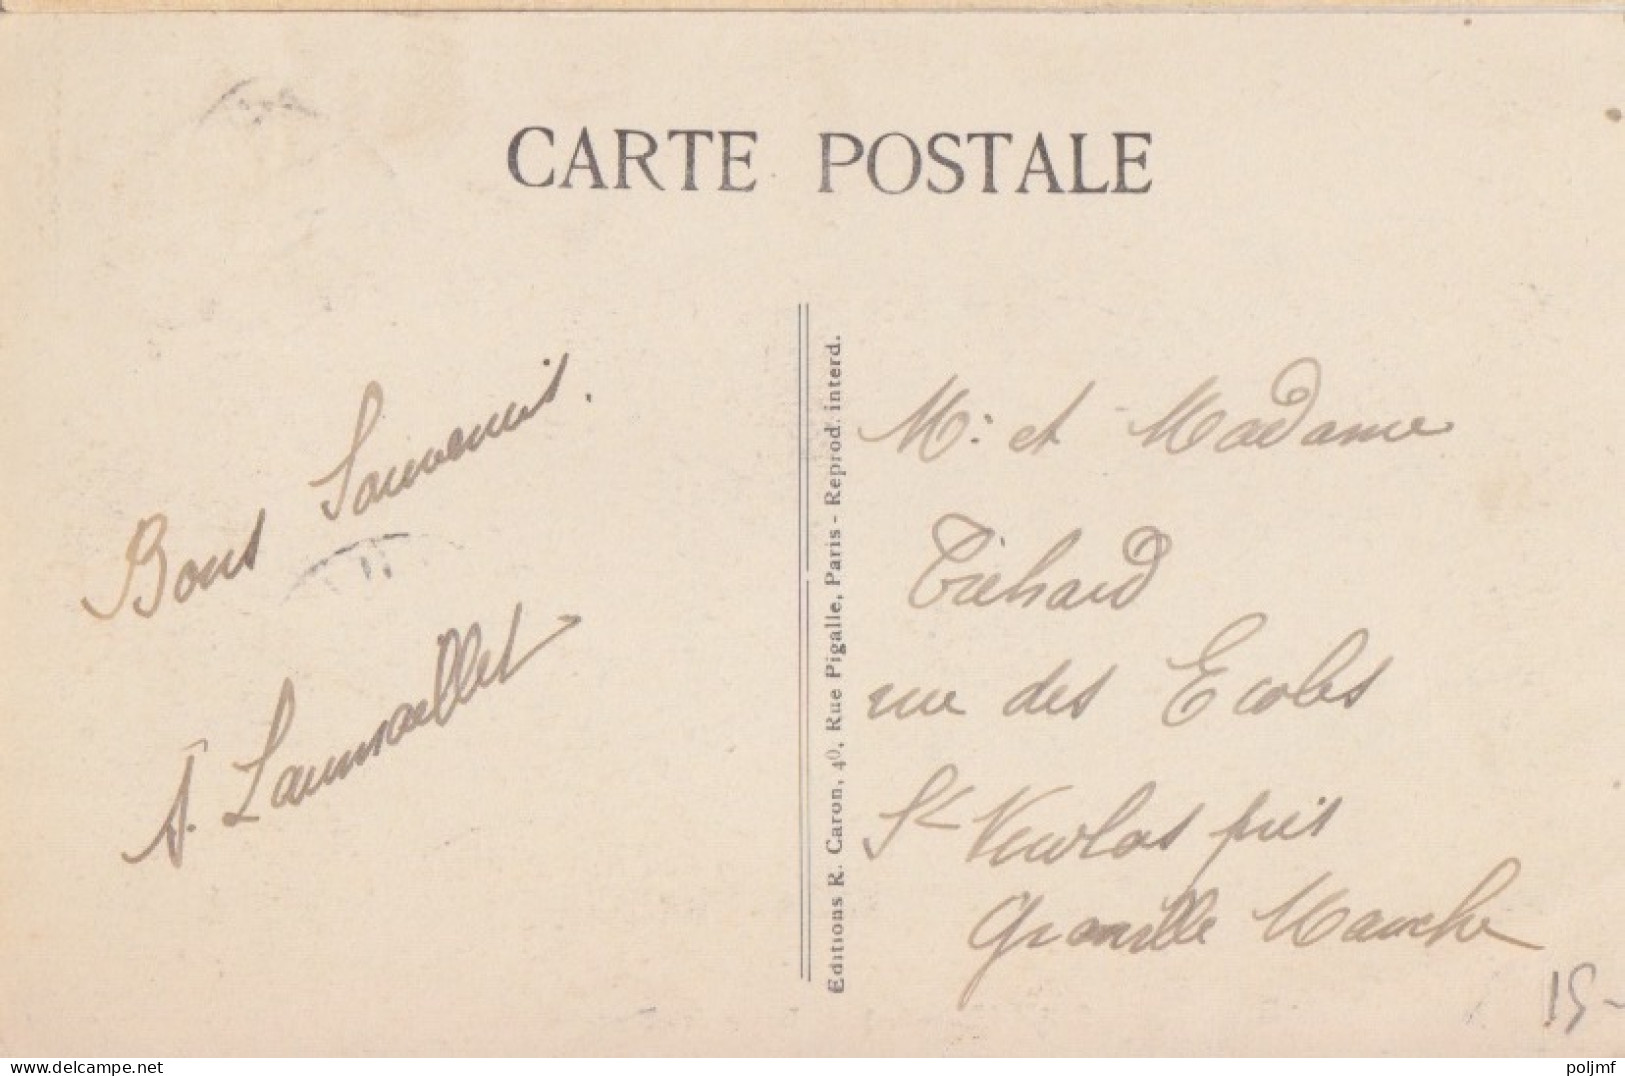 CARTE POSTALE
Bons Souvenirs.
Editions R. Caron, 40, Rue Pigalle, Paris - Reprod. interd.
M. et Madame
rue des Ecoles
St Nicolas près
Granville Manche
15-
delcampe.net
poljmf